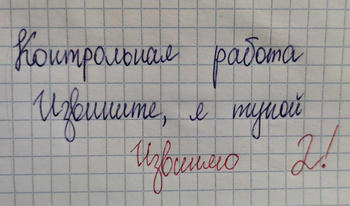 Контрольная работа
Извините, я тупой
Извиняю 2!